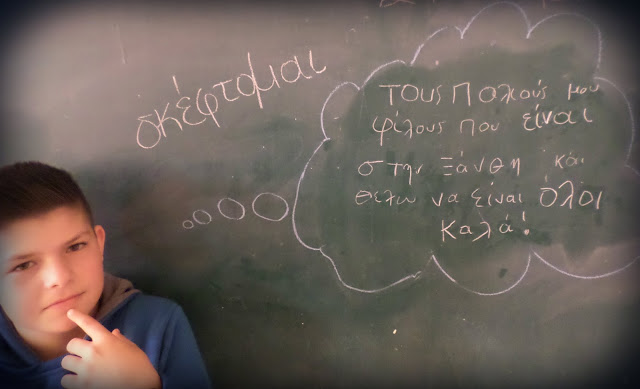 σκέφτομαι
τους παλιούς μου
φίλους που είναι
στην Ξάνθη και
θέλω να είναι όλοι
καλά!